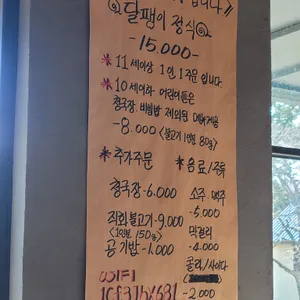 니다》
달팽이 정식
-15.000-
* 11세이상 1인 1주문 입니다.
* 10세이하 어린이들은
청국장. 비빔밥 제외됨
-8.000 <불고기 1인분 80g>
* 추가주문
청국장-6.000
직화불고기-9.000
<1인분 150g>
공기밥-1.000
* 음료/주류
소주 맥주
-5.000
막걸리
-4.000
콜라/사이다
-2.000
WIFI